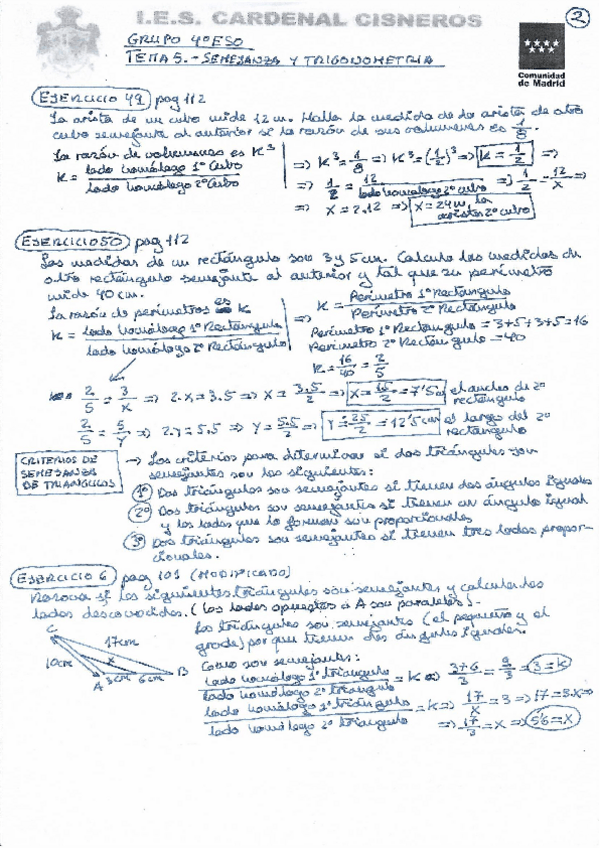 I.E.S. CARDENAL CISNEROS
2
GRUPO 4º ESO
TEMA 5.- SEMEJANZA Y TRIGONOMETRIA
Comunidad
de Madrid
EJERCICIO 49 pag 112
La arista de un cubo mide 12 m. Halla la medida de la arista de otro
cubo semejante al anterior si la razón de sus volúmenes es 1/8.
La razón de volúmenes es K³
K = lado homólogo 1º Cubo / lado homólogo 2º Cubo
=> K³ = 1/8 => K³ = (1/2)³ => K = 1/2 =>
=> 1/2 = 12 / lado homólogo 2º cubo => 1/2 = 12/x =>
=> x = 2.12 => x = 24 m, la
arista 2º cubo
EJERCICIO 50 pag 112
Las medidas de un rectángulo son 3 y 5 cm. Calcula las medidas de
otro rectángulo semejante al anterior y tal que su perímetro
mide 40 cm.
La razón de perímetros es K
K = lado homólogo 1º Rectángulo / lado homólogo 2º Rectángulo
=> K = Perímetro 1º Rectángulo / Perímetro 2º Rectángulo
Perímetro 1º Rectángulo = 3+5+3+5 = 16
Perímetro 2º Rectángulo = 40
K = 16/40 = 2/5
2/5 = 3/x => 2.x = 3.5 => x = 3.5/2 => x = 15/2 = 7'5 cm el ancho de 2º
rectángulo
2/5 = 5/y => 2.y = 5.5 => y = 5.5/2 => y = 25/2 = 12'5 cm el largo del 2º
rectángulo
CRITERIOS DE
SEMEJANZA
DE TRIANGULOS
→ Los criterios para determinar si dos triángulos son
semejantes son los siguientes:
1º Dos triángulos son semejantes si tienen dos ángulos iguales
2º Dos triángulos son semejantes si tienen un ángulo igual
y los lados que lo forman son proporcionales
3º Dos triángulos son semejantes si tienen tres lados propor-
cionales.
EJERCICIO 6 pag 101 (MODIFICADO)
Razona si los siguientes triángulos son semejantes y calcula los
lados desconocidos. (los lados opuestos a A son paralelos).
C
17cm
10cm
x
A 3cm 6cm B
Los triángulos son semejantes (el pequeño y el
grade) por que tienen dos ángulos iguales.
Como son semejantes:
lado homólogo 1º triángulo / lado homólogo 2º triangulo = K => 3+6/3 = 9/3 = 3 = K
lado homólogo 1º triángulo / lado homólogo 2º triángulo = K => 17/x = 3 => 17 = 3.x =>
=> 17/3 = x => 5'6 = x